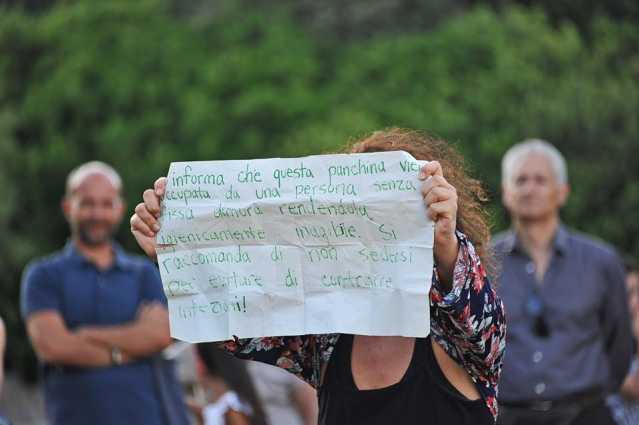 informa che questa panchina vie
ccupata da una persona senza
issa dimora rendendola
igienicamente inagibile. Si
raccomanda di non sedersi
per evitare di contrarre
infezioni!